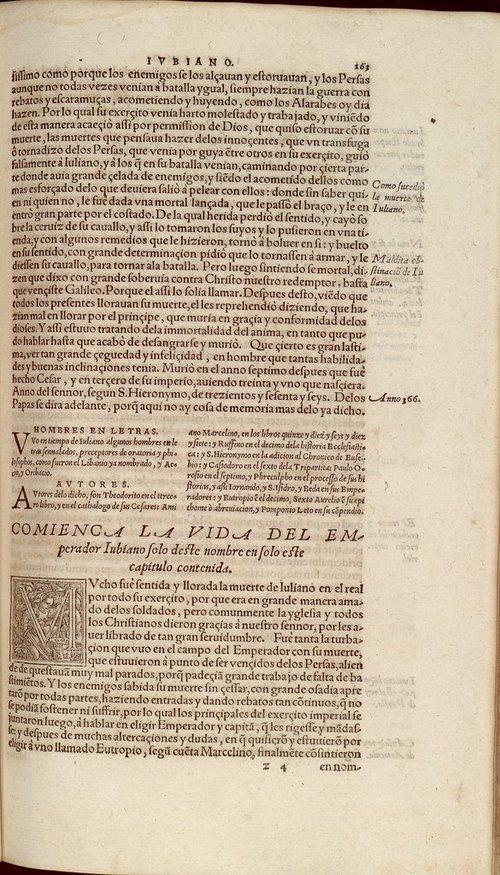 IVBIANO.
263
sissimo como porque los enemigos se los alçauan y estoruauan, y los Persas
aunque no todas vezes venían à batalla ygual, siempre hazían la guerra con
rebatos y escaramuças, acometiendo y huyendo, como los Alarabes oy dia
hazen. Por lo qual su exerçito venía harto molestado y trabajado, y viniẽdo
de esta manera acaeçiò assi por permission de Dios, que quiso estoruar cõ su
muerte, las muertes que pensaua hazer de los innocentes, que vn transfuga
ò tornadizo de los Persas, que venía por guya ẽtre otros en su exerçito, guiò
falsamente à Iuliano, y à los q̃ en su batalla venían, caminando por çierta par-
te donde auía grande çelada de enemigos, y siẽdo el acometido dellos como
mas esforçado de lo que deuiera saliò à pelear con ellos: donde sin saber qui-
en ni quien no, le fuè dada vna mortal lançada, que le passò el braço, y le en
entrò gran parte por el costado. De la qual herida perdiò el sentido, y cayò so
bre la ceruiz de su cauallo, y assi lo tomaron los suyos y lo pusieron en vna ti-
enda, y con algunos remedios que le hizieron, tornò à boluer en si: y buelto
en su sentido, con grande determinaçion pidiò que lo tornassen à armar, y le
diessen su cauallo, para tornar ala batalla. Pero luego sintiendose mortal, di-
zen que dixo con grande soberuia contra Christo nuestro redemptor, hasta
que vençiste Galileo. Porque el assi lo solía llamar. Despues desto, viẽdo que
todos los presentes llorauan su muerte, el les reprehendiò diziendo, que ha-
zían mal en llorar por el prinçipe, que muría en graçia y conformidad delos
dioses. Y assi estuuo tratando dela immortalidad del anima, en tanto que pu-
do hablar hasta que acabò de desangrarse y muriò. Que çierto es gran lasti-
ma, ver tan grande çeguedad y infeliçidad, en hombre que tantas habilida-
des y buenas inclinaçiones tenía. Muriò en el anno septimo despues que fuè
hecho Cesar, y en terçero de su imperio, auiendo treinta y vno que nasçiera.
Anno del sennor, segun S. Hieronymo, de trezientos y sesenta y seys. Delos
Papas se dira adelante, porq̃ aqui no ay cosa de memoria mas delo ya dicho.
Como sucediò
la muerte de
Iuliano.
Maldita ob-
stinaciò de Iu
liano.
Anno 366.
HOMBRES EN LETRAS.
Vvo en tiempo de Iuliano algunos hombres en le
tras semalados, preceptores de oratoria y phi-
losophos, como fueron el Libanio ya nombrado, y Ace-
çio, y Oribacio.
AVTORES.
AVtores delo dicho, son Theodorito en el terce-
ro libro, y en el cathalogo de sus Cesares: Ami
ano Marcelino, en los libros quinze y diez y seys y diez
y siete: y Ruffino en el decimo de la historia Ecclesiasti-
ca: y S. Hieronymo en la adicion al Chronico de Euse-
bio: y Casiodoro en el sexto dela Tripartita: Paulo O-
rosio en el septimo, y Phreculpho en el processo de sus hi
storias, y assi Iornando, y S. Isidro, y Beda en sus Empe-
radores: y Eutropio ẽ el decimo, Sexto Aurelio ẽ su epi
thome ò abreuiacion, y Pomponio Leto en su cõpendio.
COMIENCA LA VIDA DEL EM-
perador Iubiano solo deste nombre en solo este
capitulo contenida.
MVcho fuè sentida y llorada la muerte de Iuliano en el real
por todo su exerçito, por que era en grande manera ama-
do delos soldados, pero comunmente la yglesia y todos
los Christianos dieron graçias à nuestro sennor, por les a-
uer librado de tan gran seruidumbre. Fuè tanta la turba-
çion que vuo en el campo del Emperador con su muerte,
que estuuieron à punto de ser vençidos delos Persas, alien
de de questauã muy mal parados, porq̃ padeçiã grande trabajo de falta de ba
stimiẽtos. Y los enemigos sabida su muerte sin çessar, con grande osadia apre
tarõ por todas partes, haziendo entradas y dando rebatos tan cõtinuos, q̃ no
se podia sostener ni suffrir, por lo qual los prinçipales del exerçito imperial se
juntaron luego, à hablar en eligir Emperador y capitã, q̃ les rigesse, y mãdas-
se: y despues de muchas altercaçiones y dudas, en q̃ quisierõ y estuuierõ por
eligir à vno llamado Eutropio, segũ cuẽta Marcelino, finalmẽte cõsintieron
z 4
en nom-